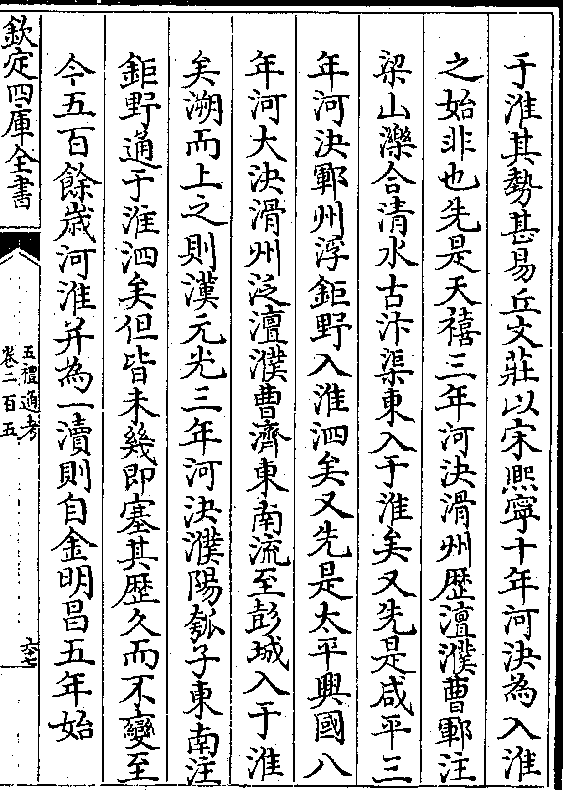 于淮其勢甚易丘文莊以宋熈寧十年河決為入淮
之始非也先是天禧三年河決滑州歷澶濮曹鄆注
梁山濼合清水古汴渠東入于淮矣又先是咸平三
年河決鄆州浮鉅野入淮泗矣又先是太平興國八
年河大決滑州泛澶濮曹濟東南流至彭城入于淮
矣溯而上之則漢元光三年河決濮陽瓠子東南注
鉅野通于淮泗矣但皆未幾即塞其歷久而不變至
今五百餘歲河淮并為一瀆則自金明昌五年始
欽定四庫全書
五禮通考
卷二百五
六七